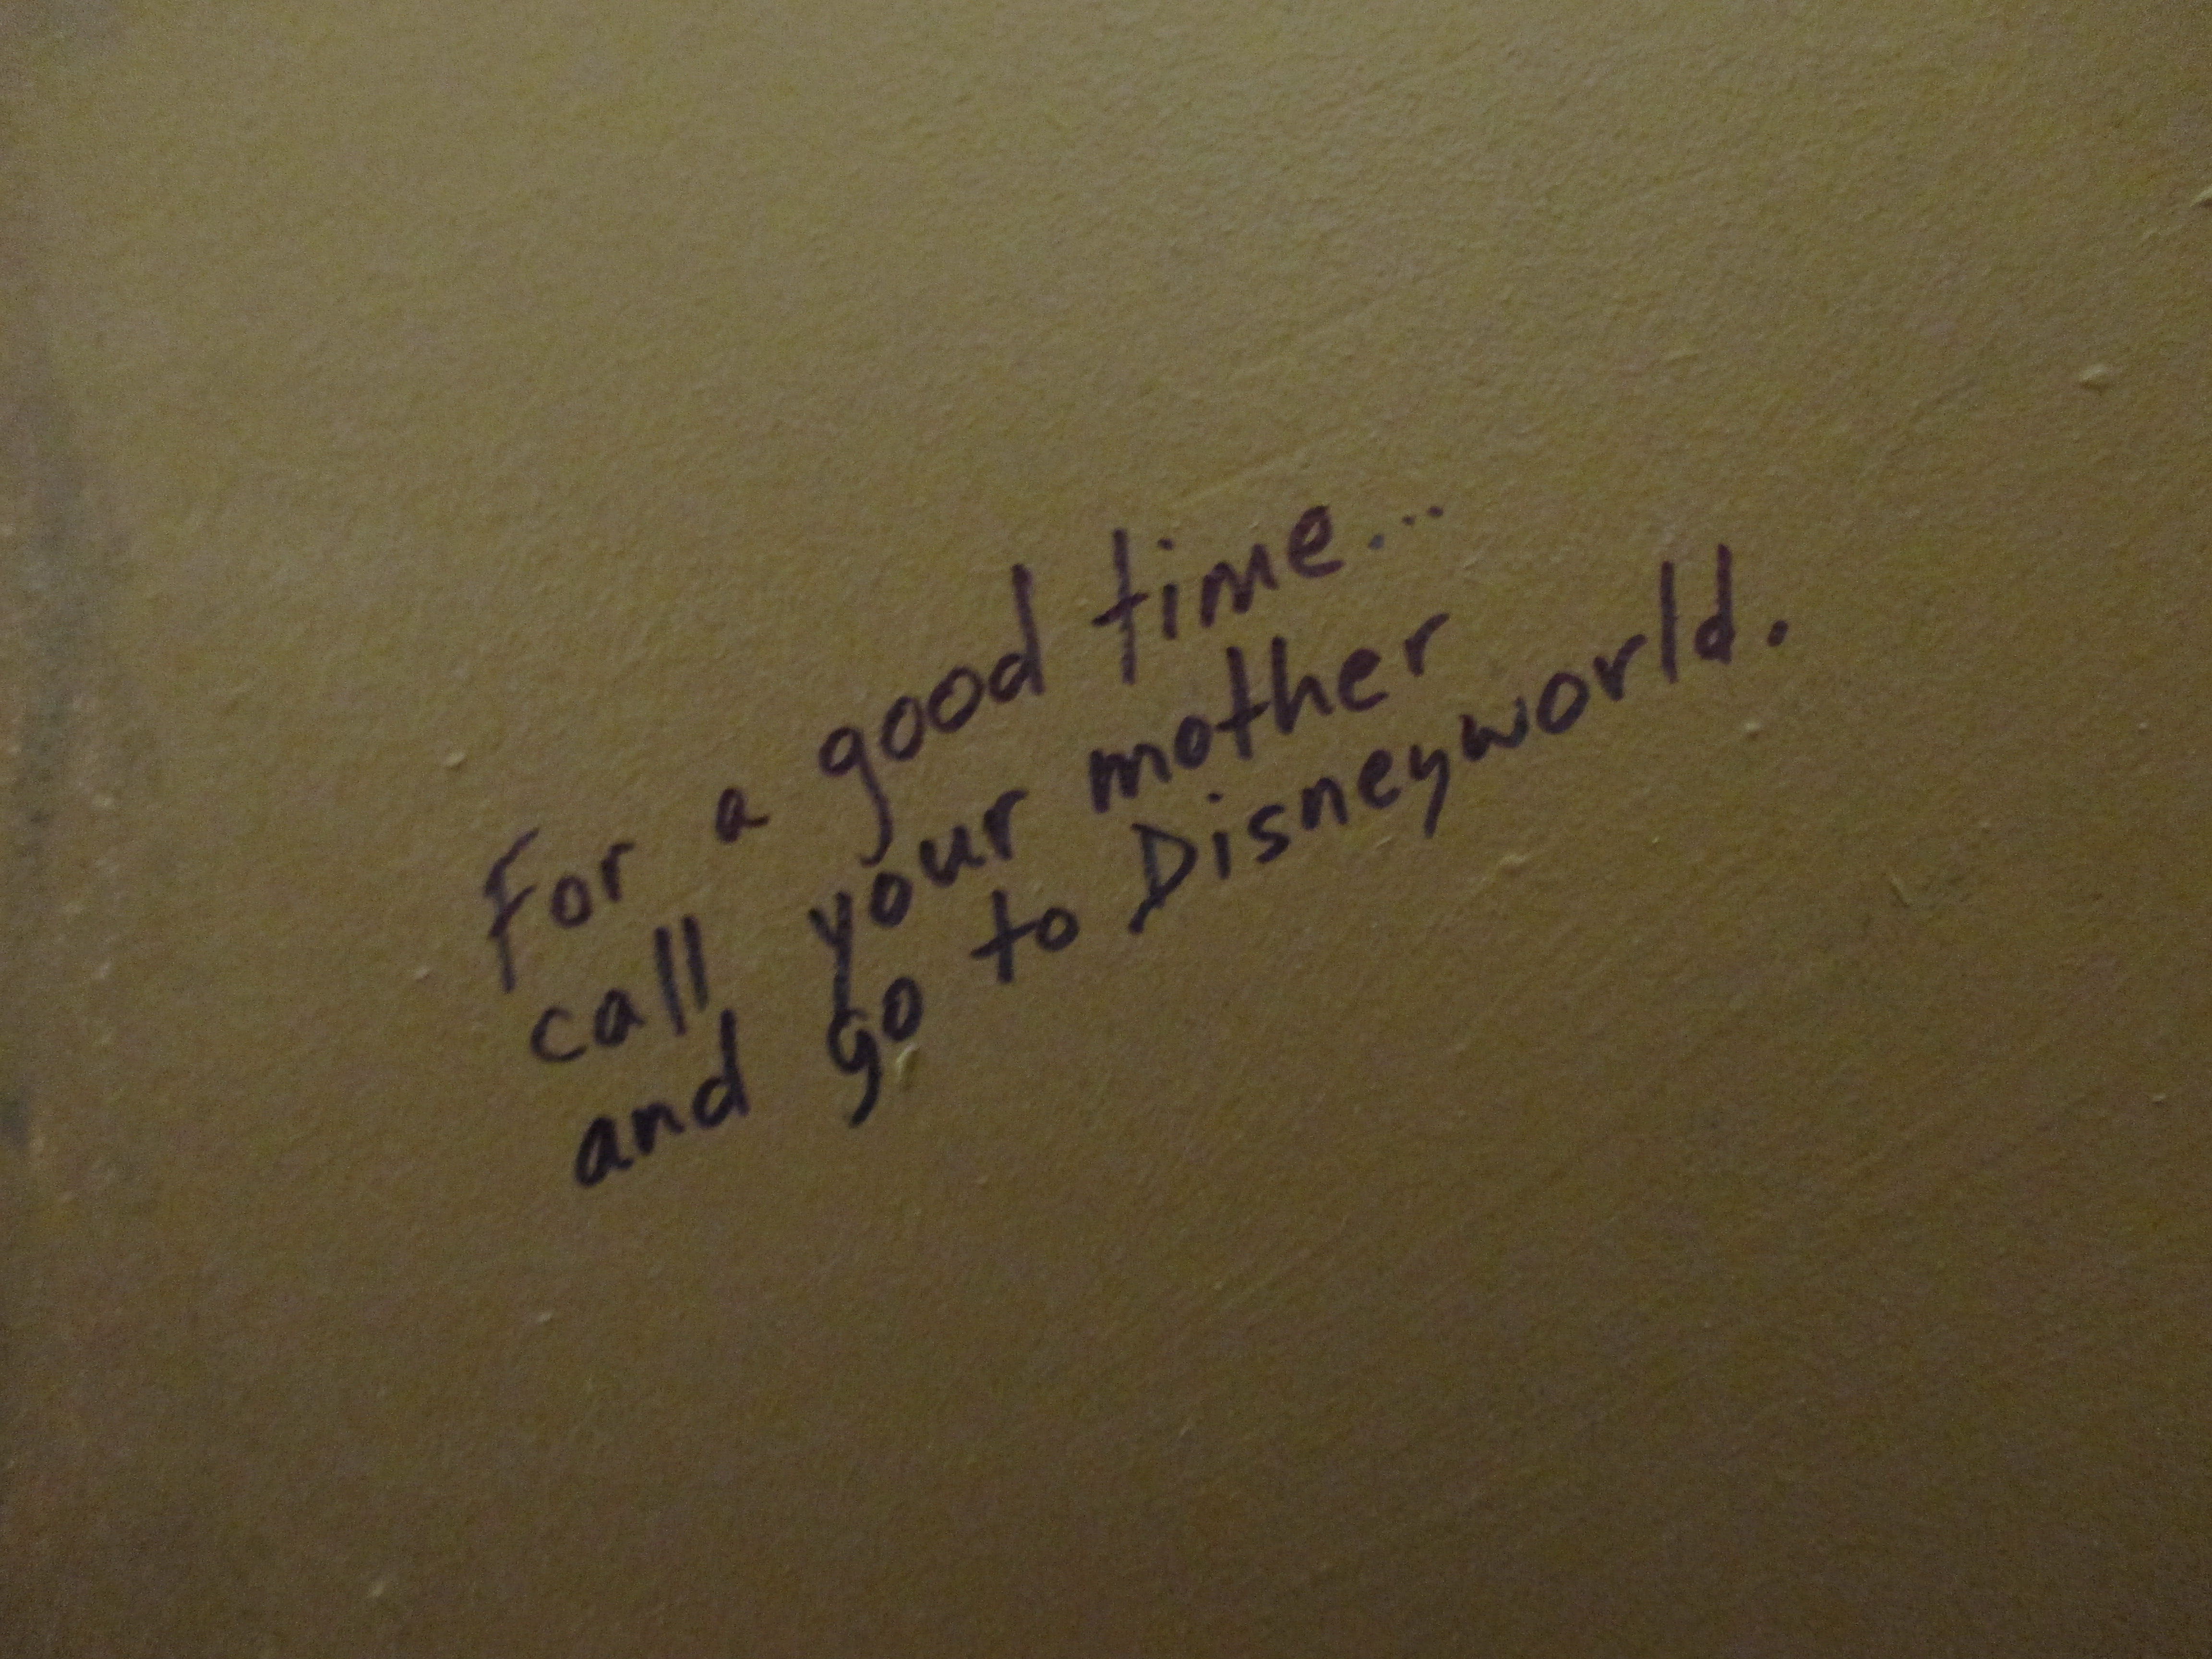 For a good time...
call your mother
and go to Disneyworld.